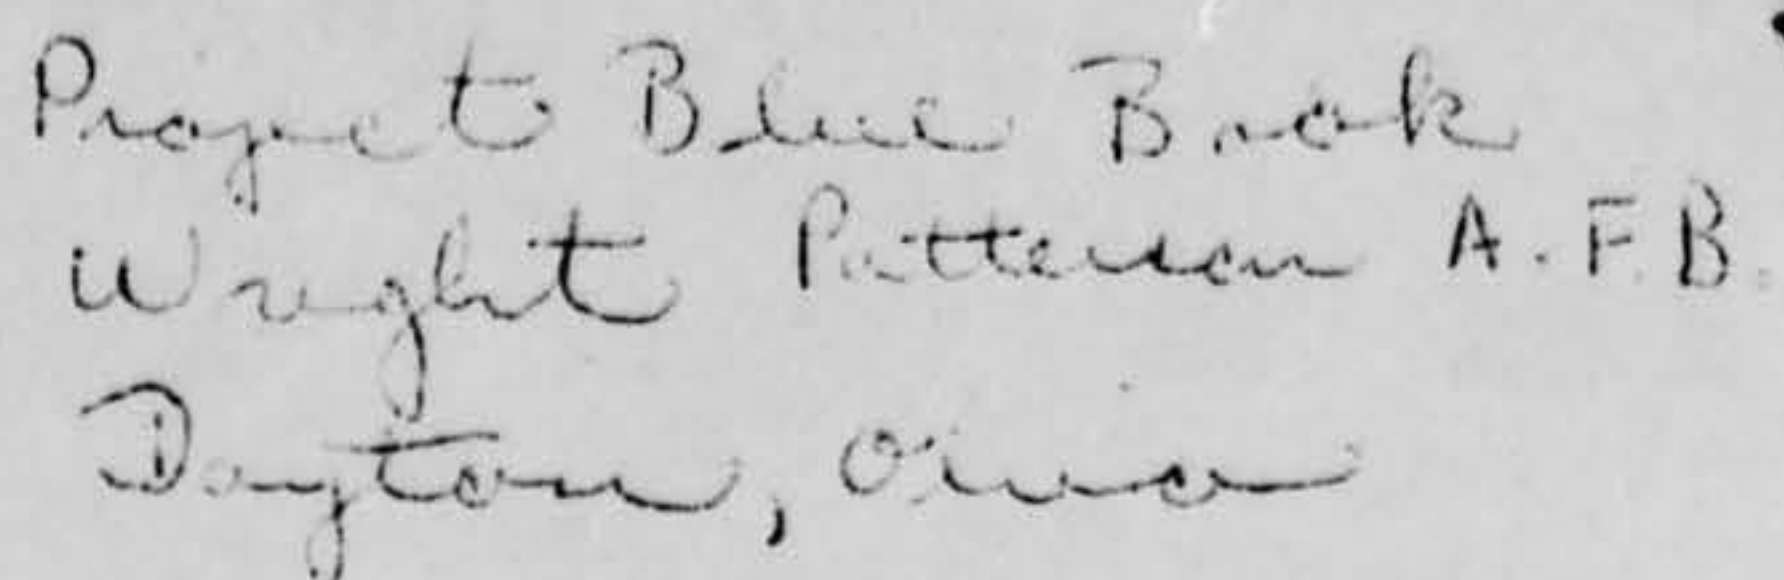 Project Blue Book
Wright Patterson A.F.B.
Dayton, Ohio